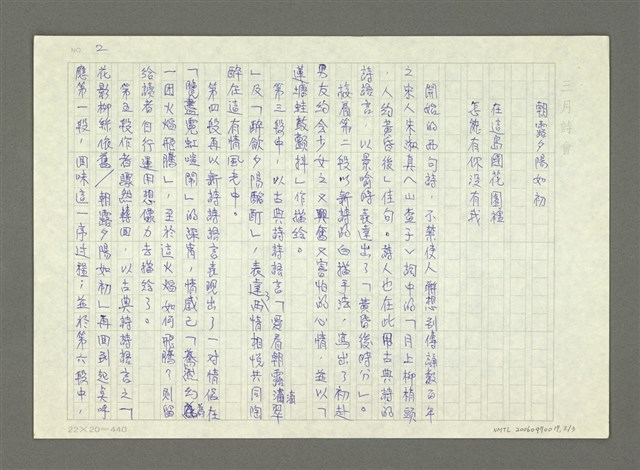 NO. 2
三月詩會
朝露夕陽如初
在這島國花園裡
怎能有你沒有我
開始的兩句詩，不禁使人聯想到傳誦數百年
之宋人朱淑真〈山查子〉詞中的「月上柳梢頭
，人約黃昏後」佳句。詩人也在此用古典詩的
詩語言，以景喻時表達出了「黃昏後時分」。
故爾第二段以新詩的白描手法，寫出了初赴
男友約會少女之又興奮又害怕的心情，並以「
蓮塘蛙鼓顫抖」作描繪。
第三段中，以古典詩詩語言「過眉朝露滴翠
」及「醉飲夕陽酩酊」，表達了兩情相悅共同陶
醉在這有情風光中。
第四段再以新詩詩語言表現出了一對情侶在
「曉盡霓虹喧鬧」的深宵，情感已「蓦然約為
一團火焰飛騰」，至於這火焰如何飛騰？則留
給讀者自行運用想像力去描繪了。
第五段作者驟然轉回，以古典詩詩語言之「
花影柳絲依舊／朝露夕陽如初」再回到起点呼
應第一段，回味這一序过程；並於第六段中，
22×20＝440
VMTL 20060990019, 2/3